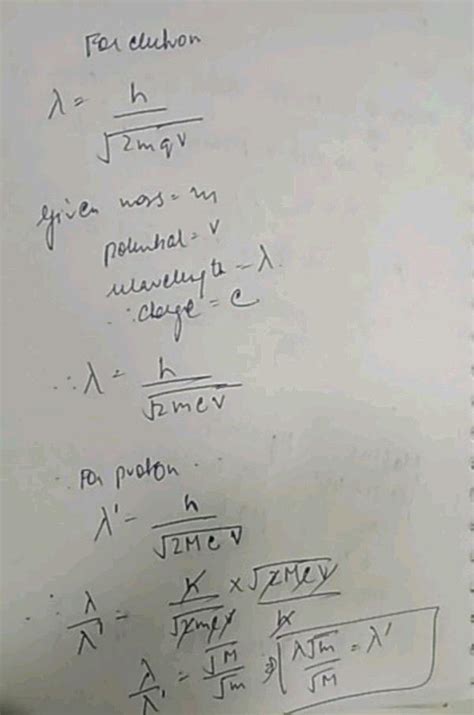 For electron
λ = h / √2mqV
Given mass = m
potential = V
wavelength = λ
∴ charge = e
∴ λ = h / √2meV
For proton
λ' = h / √2MeV
∴ λ/λ' = h/√2meV × √2MeV/h
λ/λ' = √M/√m ⇒ λ√m/√M = λ'